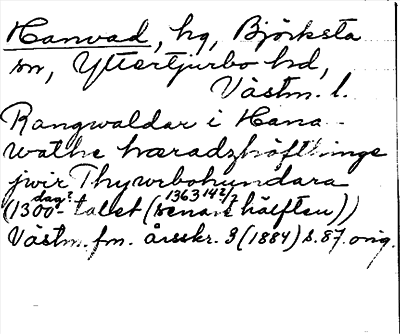 Hanvad, hg, Björksta
sn, Yttertjurbo hd,
Västm. l.
Rangwaldar i Hana-
wathe hæradzhöfthinge
jwir Thywrbohundara
dag? 1363 14 2/7
(1300-talet (senare hälften))
Västm. fm. årsskr. 3 (1884) s. 87. orig.